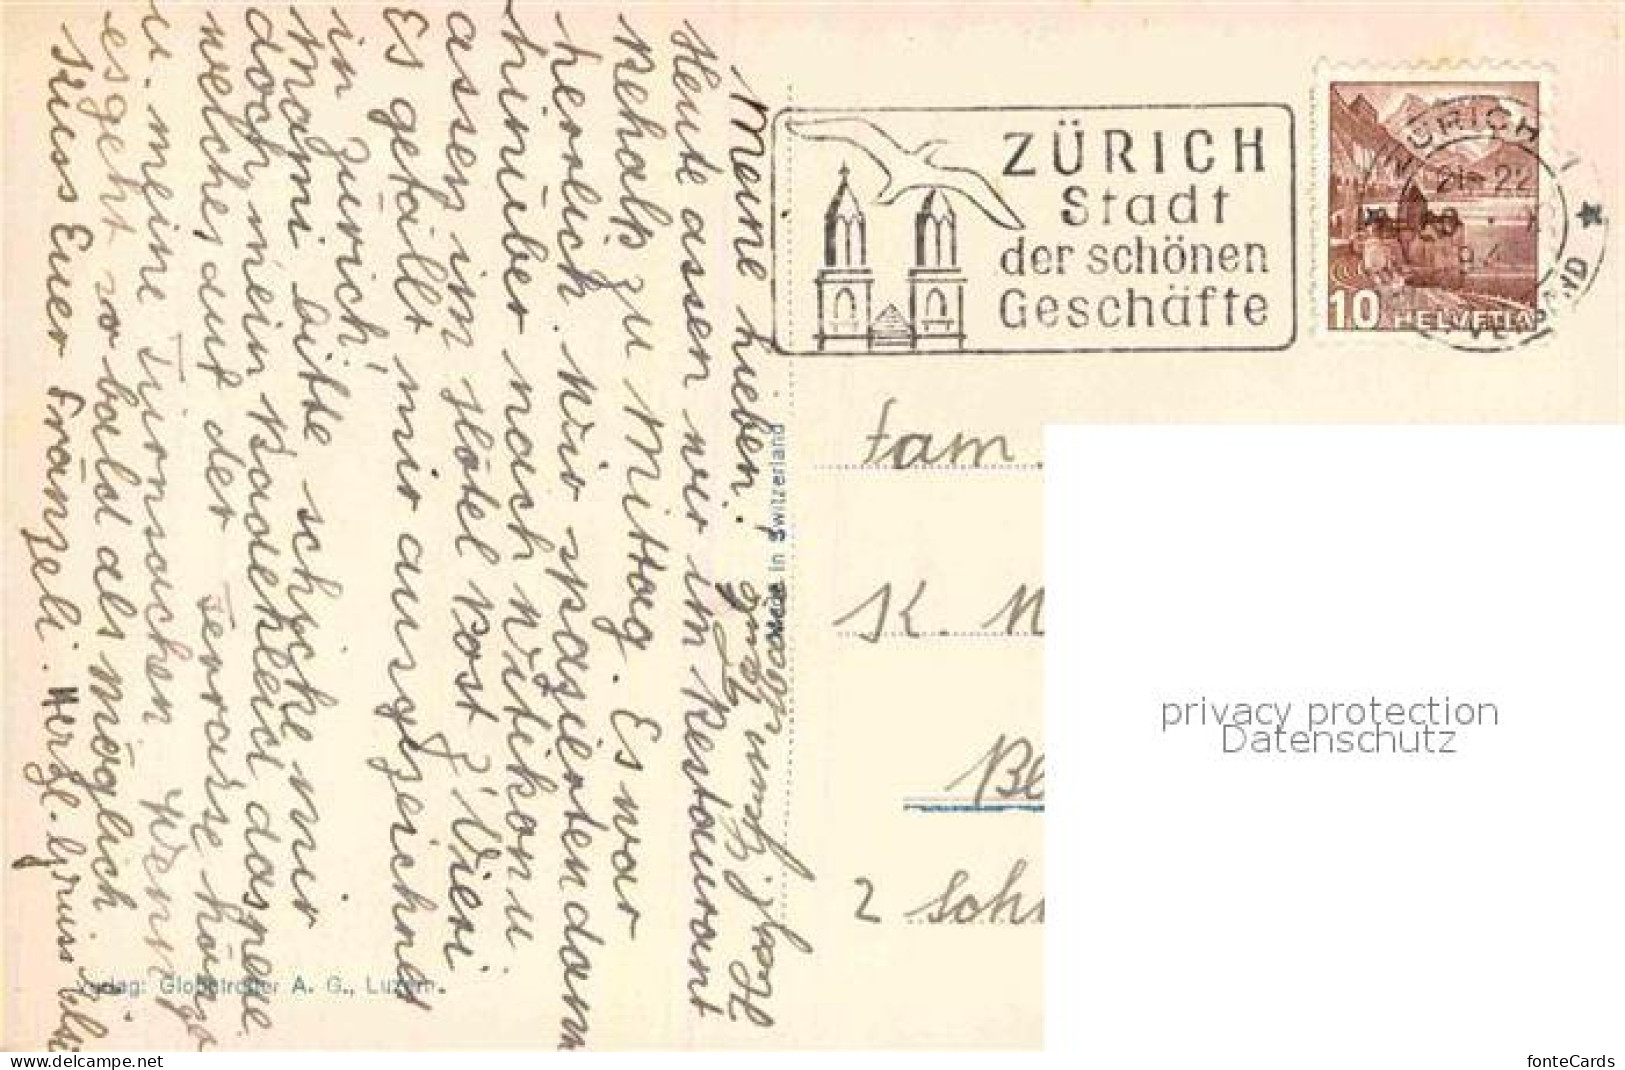 Meine Lieben!
Heute assen wir im Restaurant
Rehalp zu Mittag. Es war
herrlich. Wir spazierten dann
hinüber nach Witikon u.
assen im Hotel Post z'Vieri
Es gefällt mir ausgezeichnet
in Zürich!
Mami bitte schicke mir
doch mein Badekleid das neue
welches auf der Terrasse hängt
u. meine Turnsachen wenn
es geht so bald als möglich.
Kuss Euer Fränzeli. Herzl. Gruss Elsi
Made in Switzerland
Verlag: Globetrotter A. G., Luzern.
ZÜRICH
Stadt
der schönen
Geschäfte
ZÜRICH 1
21-22
10 HELVETIA
Fam.
K.
2
privacy protection
Datenschutz
www.delcampe.net
fonteCards